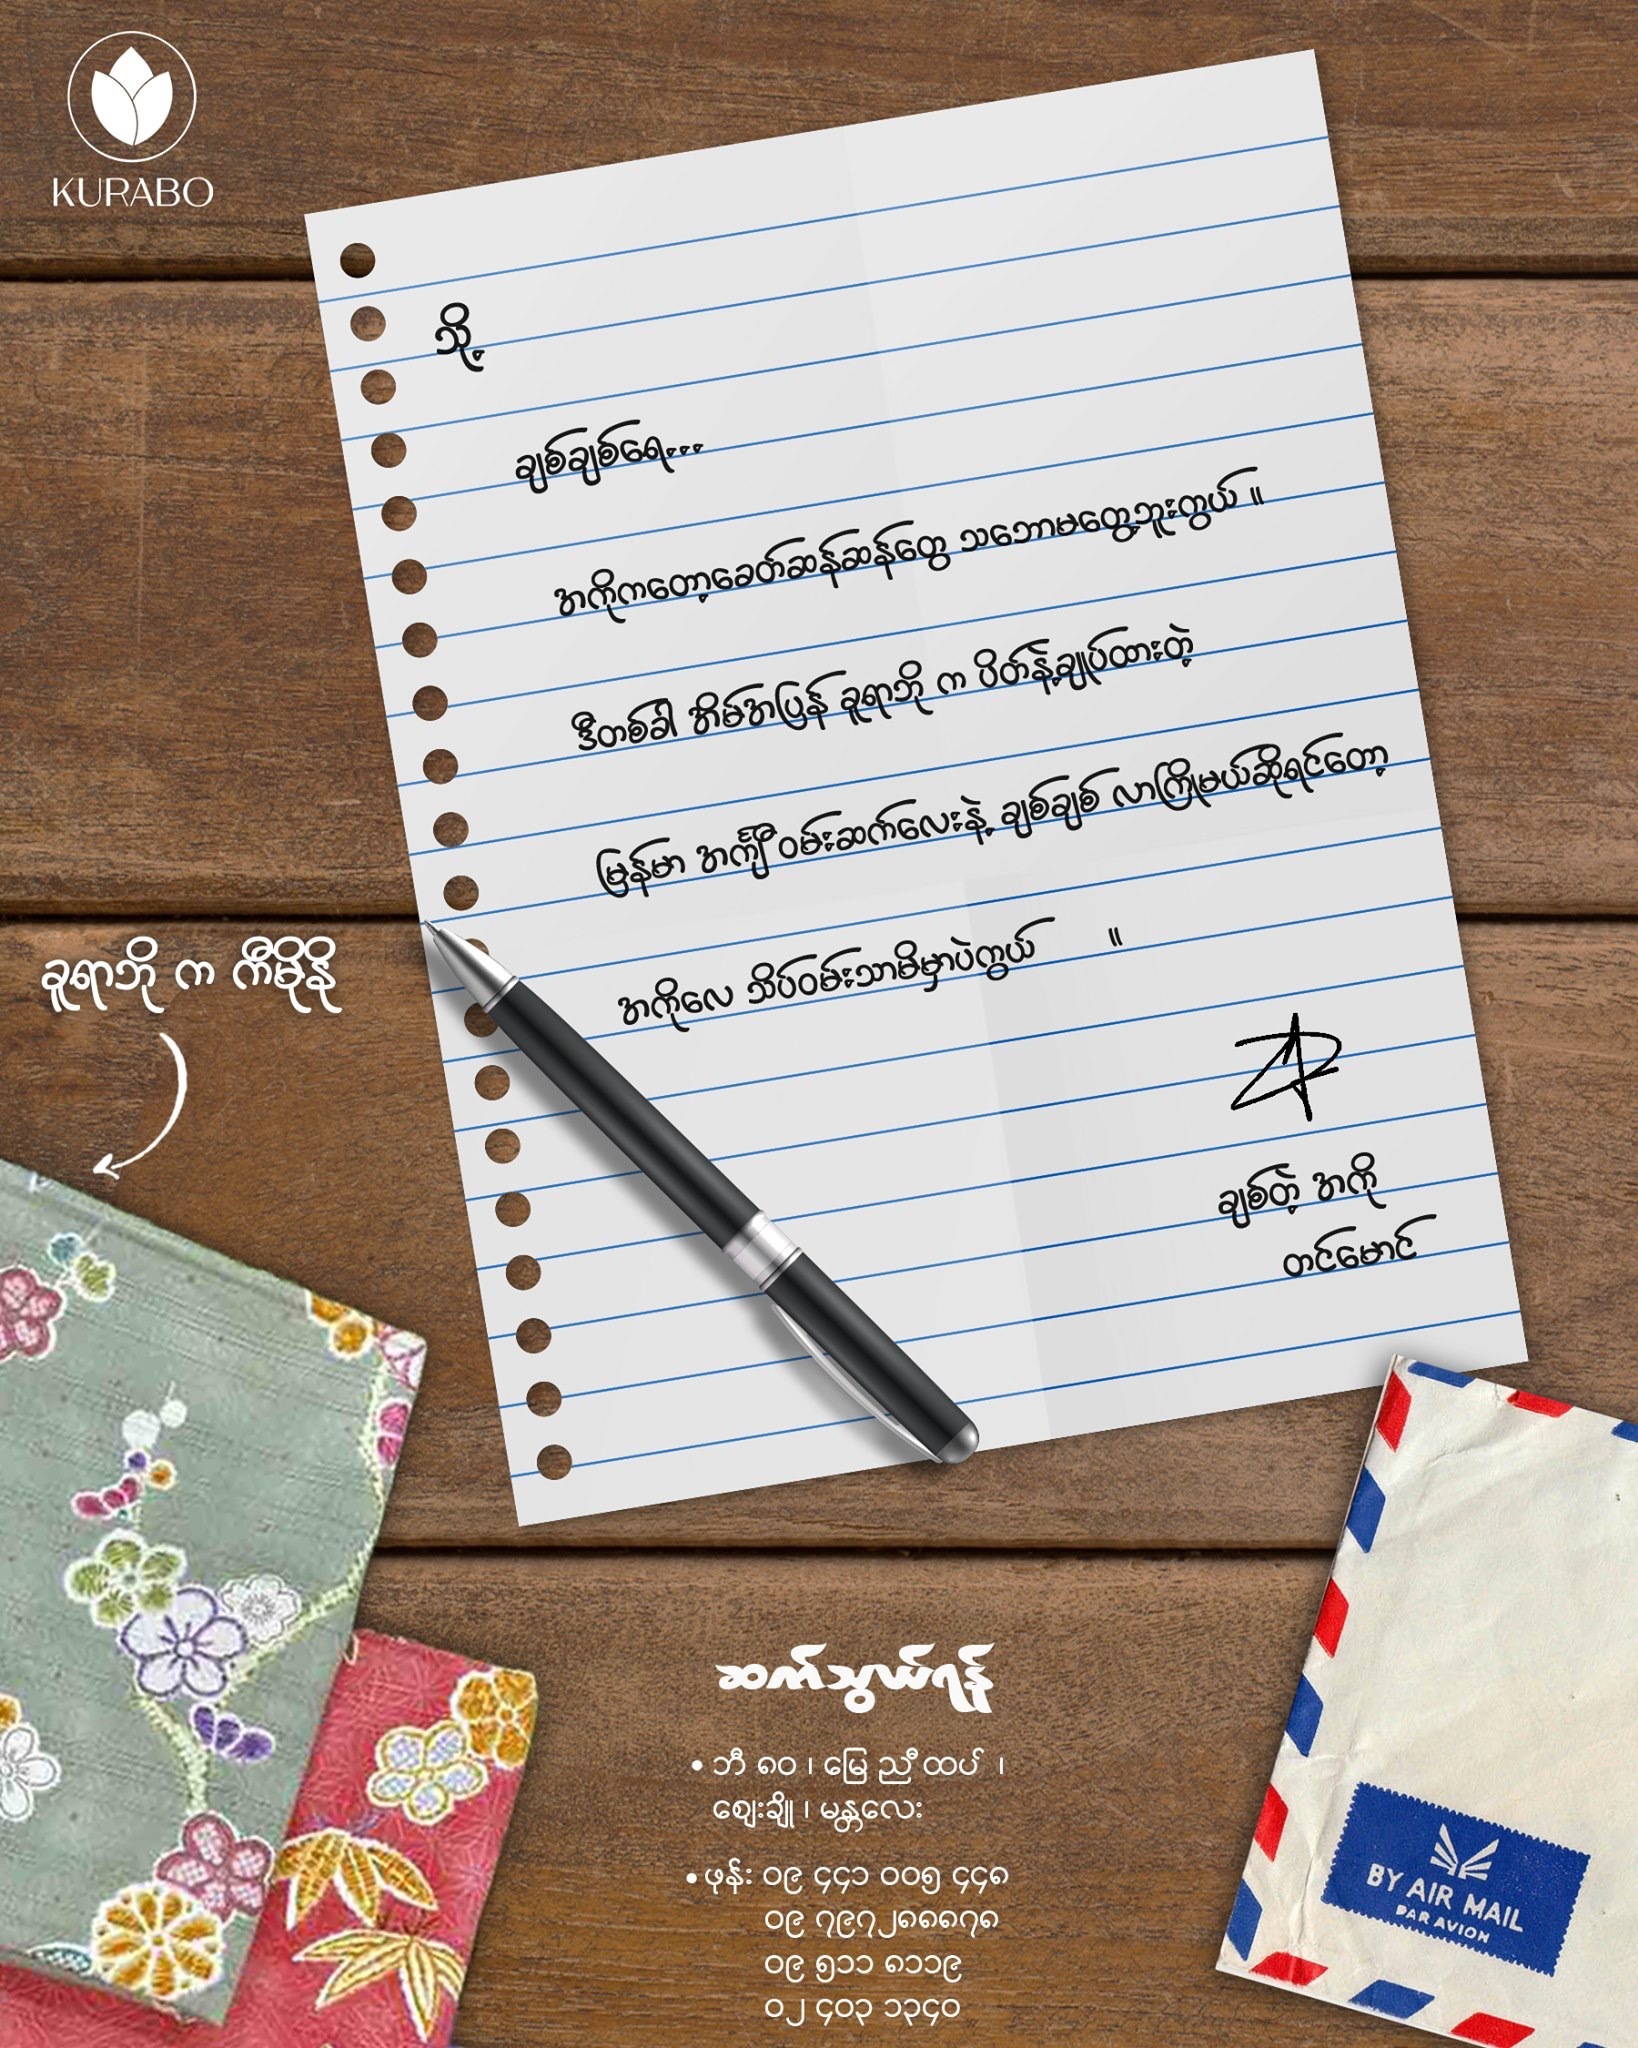 KURABO
သို့
ချစ်ချစ်ရေ...
အကိုကတော့ခေတ်ဆန်ဆန်တွေ သဘောမတွေ့ဘူးကွယ် ။
ဒီတစ်ခါ အိမ်အပြန် ခူရာဘို က ပိတ်နဲ့ချုပ်ထားတဲ့
မြန်မာ အင်္ကျီ ဝမ်းဆက်လေးနဲ့ ချစ်ချစ် လာကြိုမယ်ဆိုရင်တော့
အကိုလေ သိပ်ဝမ်းသာမိမှာပဲကွယ် ။
ချစ်တဲ့ အကို
တင်မောင်
ခူရာဘို က ကီမိုနို
ဆက်သွယ်ရန်
• ဘီ ၈၀ ၊ မြေ ညီ ထပ် ၊
ဈေးချို ၊ မန္တလေး
• ဖုန်း ၀၉ ၄၄၁ ၀၀၅ ၄၄၈
၀၉ ၇၉၇၂၈၈၈၇၈
၀၉ ၅၁၁ ၈၁၁၉
၀၂ ၄၀၃ ၁၃၄၀
BY AIR MAIL
PAR AVION